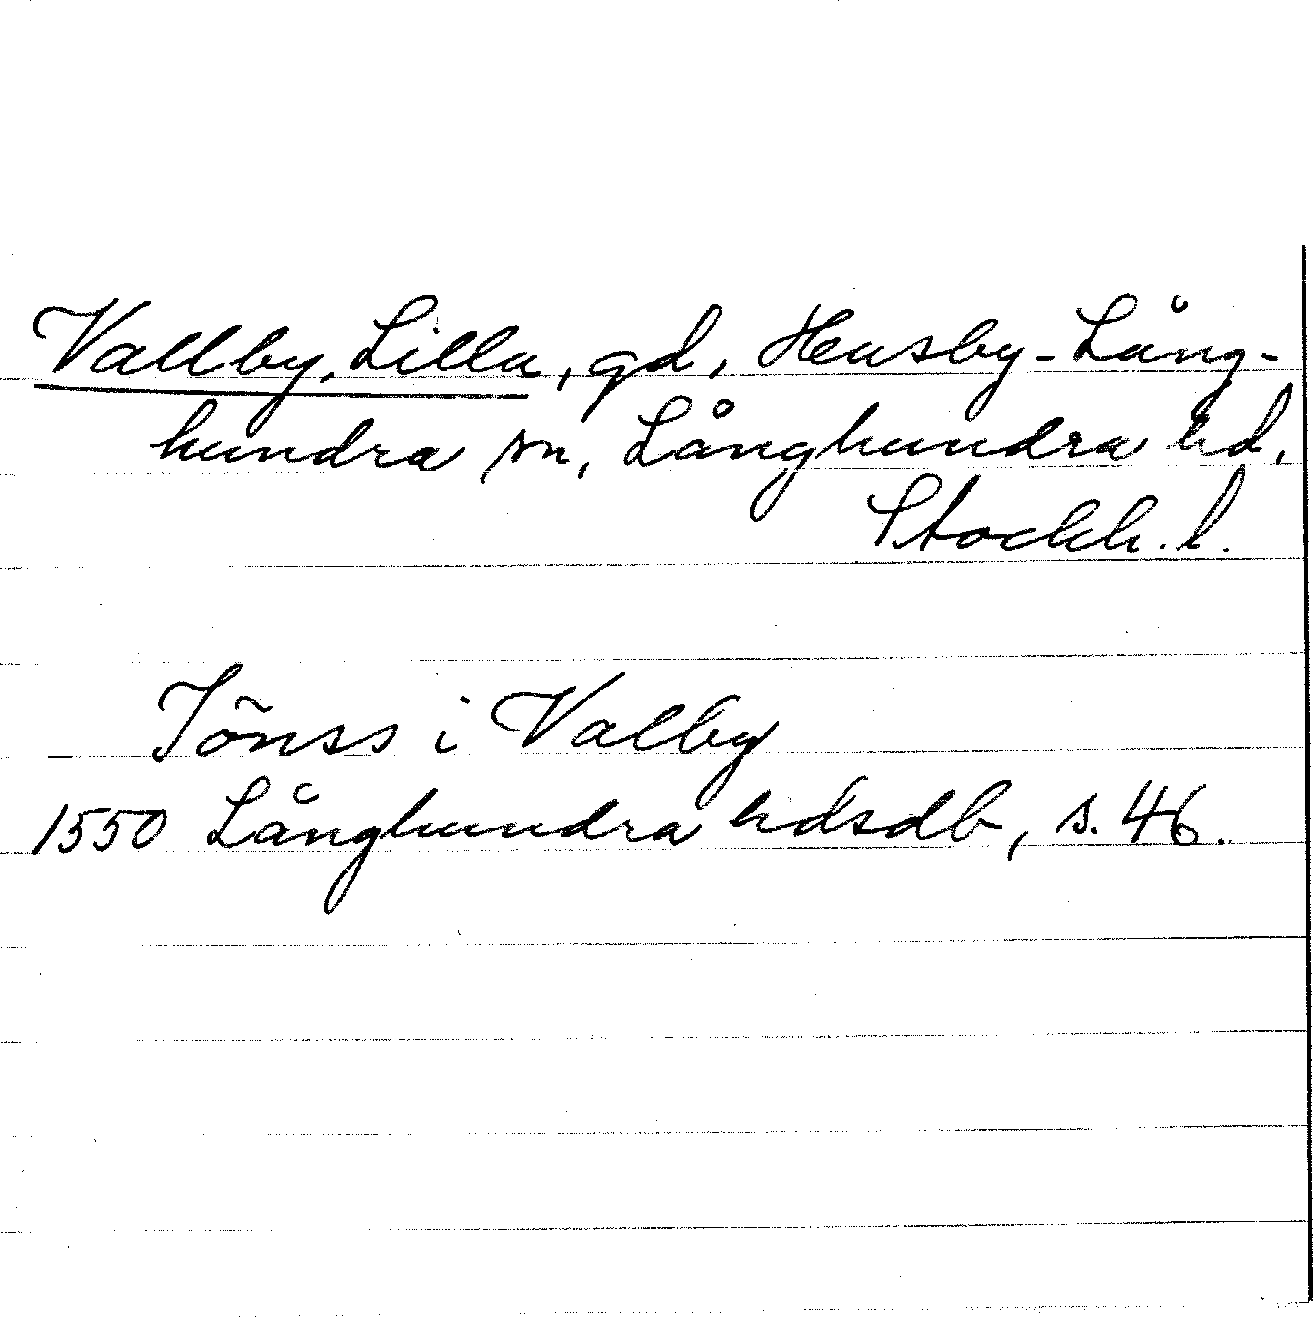 Vallby, Lilla, gd, Husby-Lång-
hundra sn, Långhundra hd.
Stockh. l.
Jönss i Valby
1550 Långhundra hdsdb, s. 46.